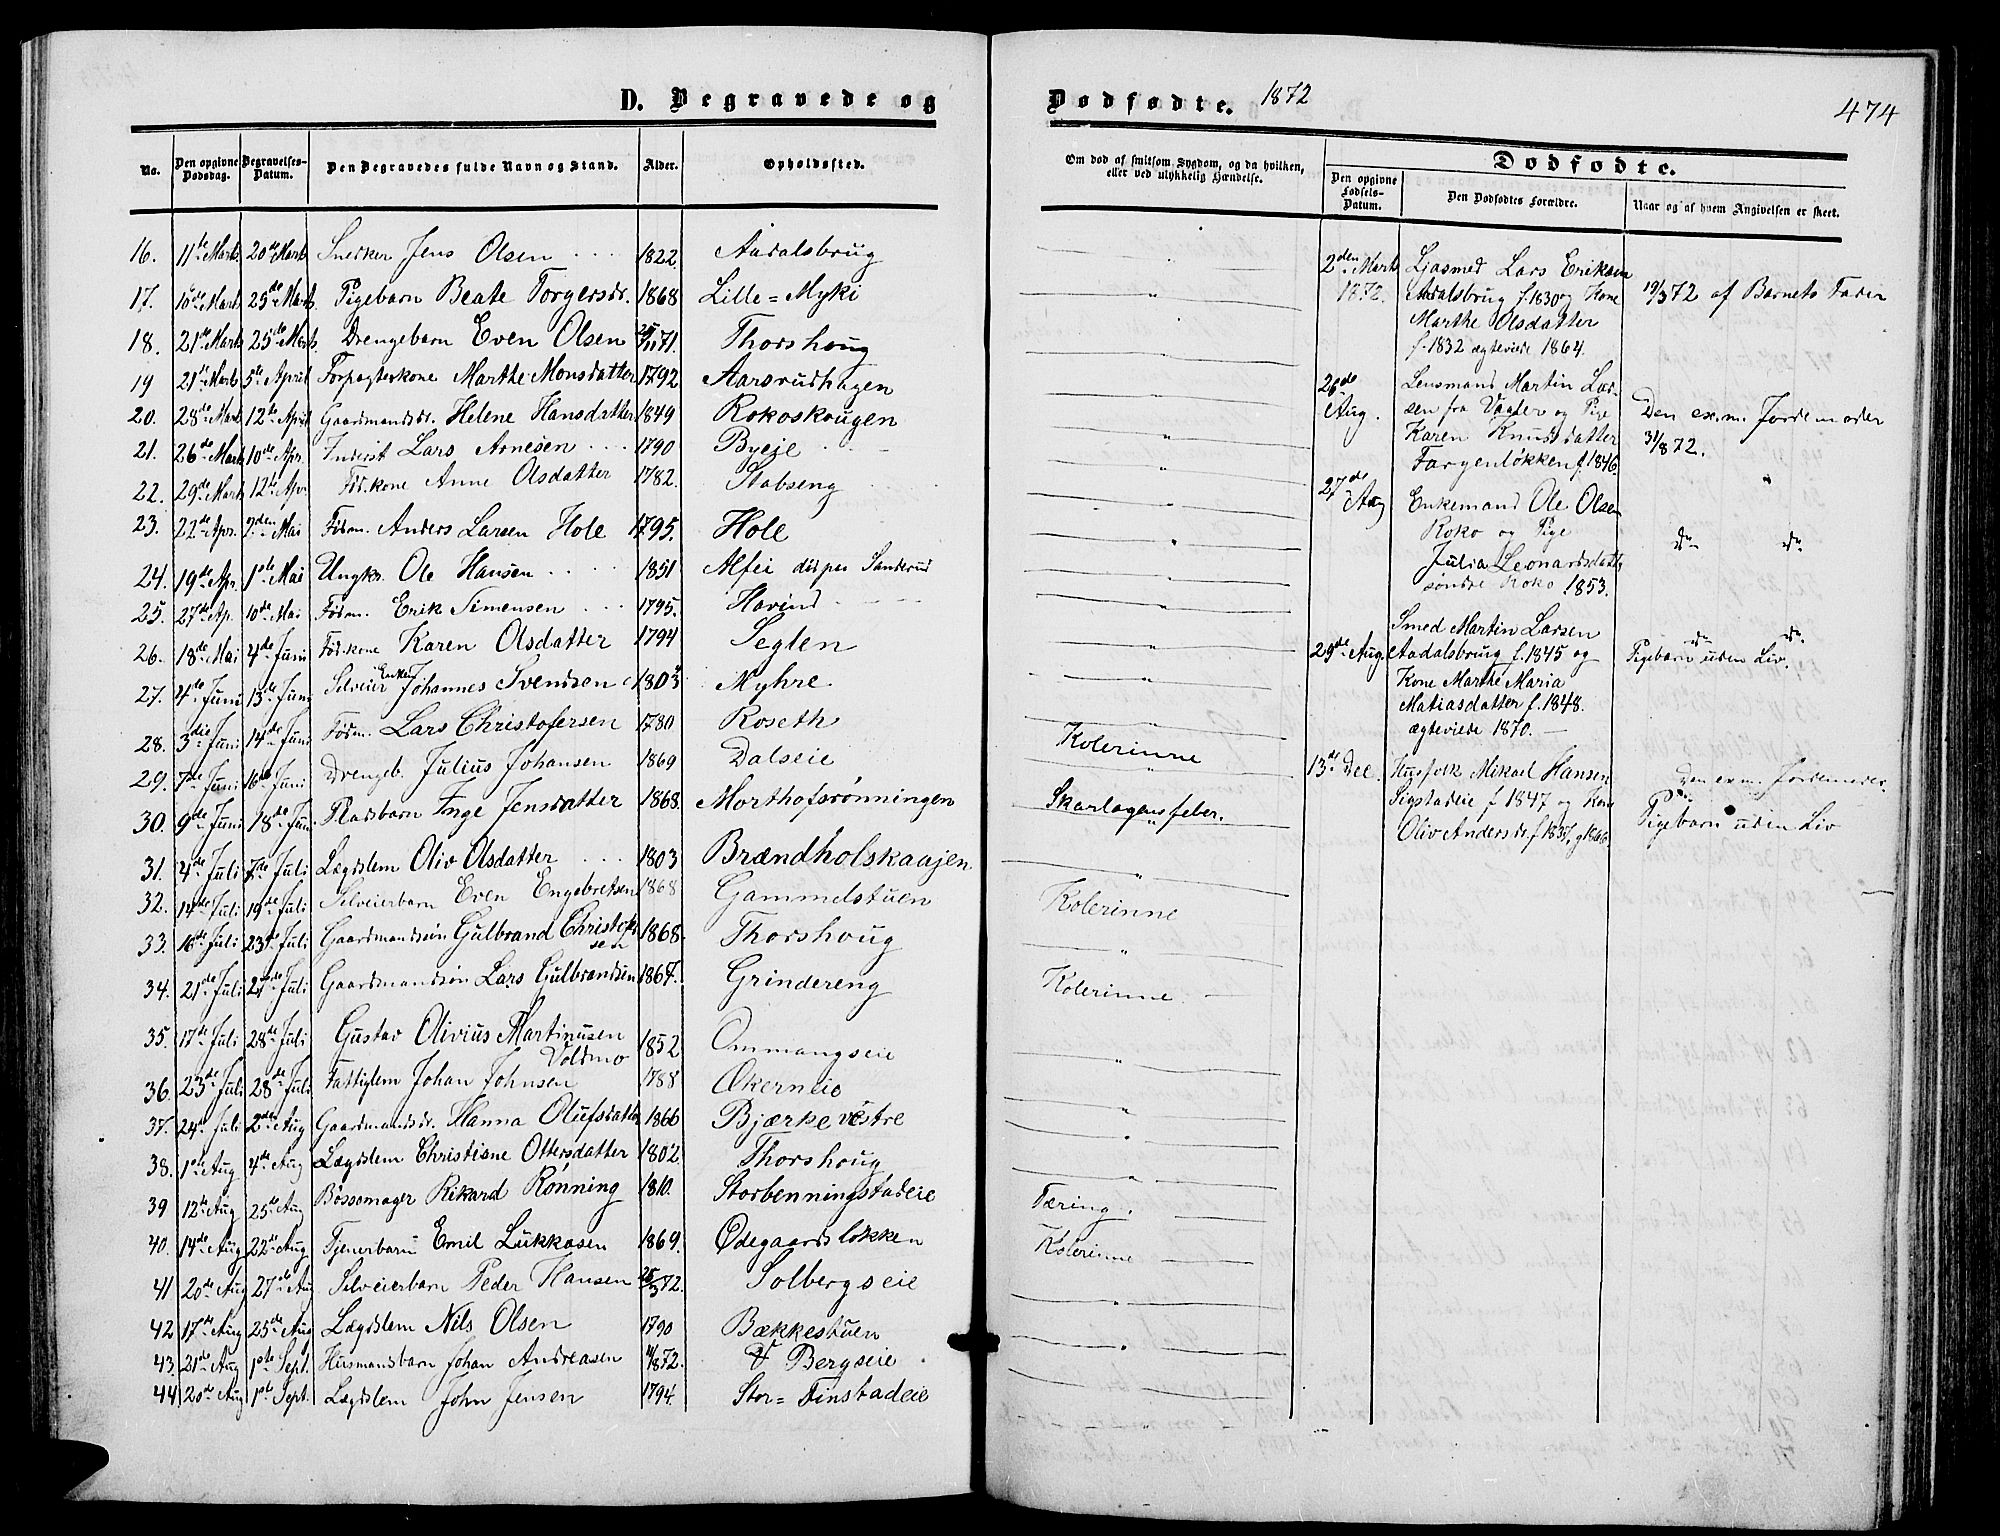 D. Begravede og
Dødfødte. 1872
474
No.
Den opgivne Dødsdag.
Begravelses-Datum.
Den Begravedes fulde Navn og Stand.
Alder.
Opholdssted.
Om død af smitsom Sygdom, og da hvilken, eller ved ulykkelig Hændelse.
Dødfødte.
Den opgivne Fødsels-Datum.
Den Dødfødtes Forældre.
Naar og af hvem Angivelsen er skeet.
16. 11te Marts 20de Marts Snedker Jens Olsen 1822. Aadalsbrug
17. 10de Marts 25de Marts Pigebarn Beate Torgersdr. 1868 Lille=Myki
18. 21de Marts 25de Marts Drengebarn Even Olsen 25/11 71. Thorshoug
19 21de Marts 5te April Forpagterkone Marthe Monsdatter 1792 Aarsrudhagen
20. 28de Marts 12te April Gaardmandsdr. Helene Hansdatter 1849 Rokoskougen
21. 26de Marts 10de Apr. Inderst Lars Arnesen 1790 Byeie
22. 29de Marts 12te Apr. Fød.kone Anne Olsdatter 1782. Stabseng
23. 22de Apr. 2den Mai Fødm. Anders Larsen Hole 1795. Hole
24. 19de Apr. 1ste Mai Ungkr. Ole Hansen 1851 Alfei død paa Sanderud
25. 27de Ap. 10de Mai Fødm. Erik Simensen 1795. Havind
26. 18de Mai 4de Juni Fød.kone Karen Olsdatter 1794 Seglen
27. 4de Juni 13de Juni Selveier Enkem. Johannes Svendsen 1803 Myhre
28. 3die Juni 14de Juni Fødm. Lars Christofersen 1780 Roseth
29. 7de Juni 16de Juni Drengeb. Julius Johansen 1869 Dalseie Kolerinne
30. 9de Juni 18de Juni Pladsbarn Inge Jensdatter 1868. Morthofsrønningen Skarlagensfeber.
31. 4de Juli 7de Juli Lægdslem Oliv Olsdatter 1803 Brændholskaajen
32. 14de Juli 19de Juli Selveierbarn Even Engebretsen 1868 Gammelstuen Kolerinne
33. 16de Juli 23de Juli Gaardmandsøn Gulbrand Christofersen 1868. Thorshoug
34. 21de Juli 27de Juli Gaardmandsøn Lars Gulbrandsen 1867. Grindereng Kolerinne
35. 17de Juli 28de Juli Gustav Olivius Martinusen Voldmo 1852 Ommangseie
36. 23de Juli 28de Juli Fattiglem Johan Johnsen 1788 Økerneie
37. 24de Juli 2den Aug Gaardmandsdr. Hanna Olufsdatter 1866 Bjærke vestre
38. 1ste Aug 4de Aug Lægdslem Christiane Ottersdatter 1802. Thorshoug
39 12te Aug 25de Aug Bøssemager Rikard Rønning 1810. Storbenningstadeie Tæring.
40. 14de Aug 22de Aug Tjenerbarn Emil Lukkasen 1869. Ødegaardsløkken Kolerinne
41 20de Aug 27de Aug Selveierbarn Peder Hansen 25/3 72. Solbergseie
42 17de Aug 25de Aug Lægdslem Nils Olsen 1790 Bækkestuen
43. 21de Aug 1ste Sept. Husmandsbarn Johan Andreasen 4/8 72. V Bergseie
44 20de Aug 1ste Sept. Lægdslem John Jensen 1794. Stor=Finstadeie
2den Marts 1872.
Ljasmed Lars Eriksen
Aadalsbrug f. 1830 og Kone
Marthe Olsdatter
f. 1832 ægteviede 1864.
19/3 72 af Barnets Fader
26de Aug.
Lensmand Martin Lar-
sen fra Vaaler og Pige
Karen Knudsdatter
Fargenløkken f. 1846.
Den exm. Jordemoder
31/8 72.
27de Aug
Enkemand Ole Olsen
Roko og Pige
Julia Leonardsdatt.
søndre Roko 1853.
do do
29de Aug.
Smed Martin Larsen
Aadalsbrug f. 1845 og
Kone Marthe Maria
Matiasdatter f. 1848.
ægteviede 1870.
do do
Pigebarn uden Liv.
13de Dec.
Husfolk Mikael Hansen
Sigstadeie f 1847 og Kone
Oliv Andersdr. f. 1837.
Den exm. Jordemoder
Pigebarn uden Liv